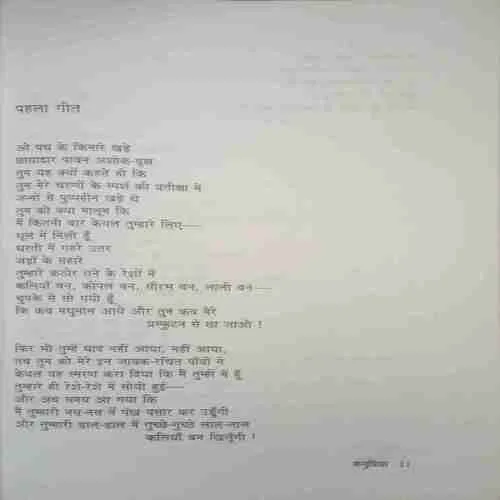 पहला गीत
ओ पथ के किनारे खड़े
छायादार पावन अशोक-वृक्ष
तुम यह क्यों कहते हो कि
तुम मेरे चरणों के स्पर्श की प्रतीक्षा में
जन्मों से पुष्पहीन खड़े थे
तुम को क्या मालूम कि
मैं कितनी बार केवल तुम्हारे लिए—
धूल में मिली हूँ
धरती में गहरे उतर
जड़ों के सहारे
तुम्हारे कठोर तने के रेशों में
कलियाँ बन, कोंपल बन, सौरभ बन, लाली बन—
चुपके से सो गयी हूँ
कि कब मधुमास आये और तुम कब मेरे
प्रस्फुटन से छा जाओ !
फिर भी तुम्हें याद नहीं आया, नहीं आया,
तब तुम को मेरे इन जावक-रचित पाँवों ने
केवल यह स्मरण करा दिया कि मैं तुम्हीं में हूँ
तुम्हारे ही रेशे-रेशे में सोयी हुई—
और अब समय आ गया कि
मैं तुम्हारी नस-नस में पंख पसार कर उड़ूँगी
और तुम्हारी डाल-डाल में गुच्छे-गुच्छे लाल-लाल
कलियाँ बन खिलूँगी !
कनुप्रिया 11